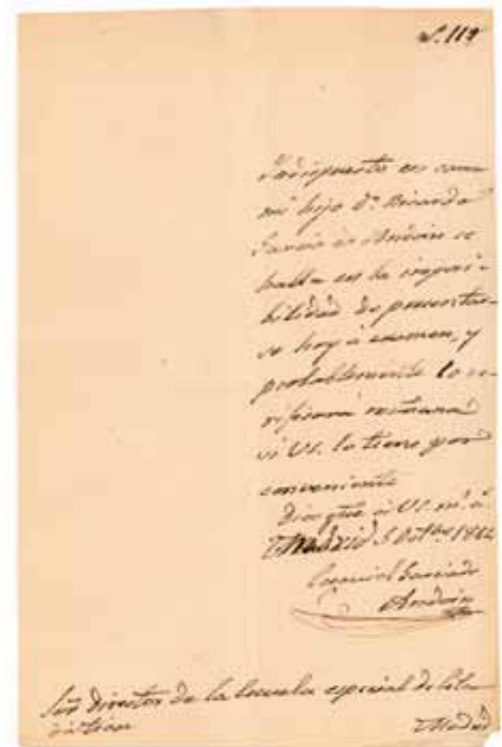 N.º 119
Indispuesto en cama
mi hijo Dn. Ricardo
García de
halla en la imposi-
bilidad de presentar-
se hoy á examen, y
probablemente lo ve-
rificará mañana
si VS. lo tiene por
conveniente
Dios gue. á VS. ms. as.
Madrid 5 Octbre 1862
García de
Señor director de la Escuela especial de
Madrid.